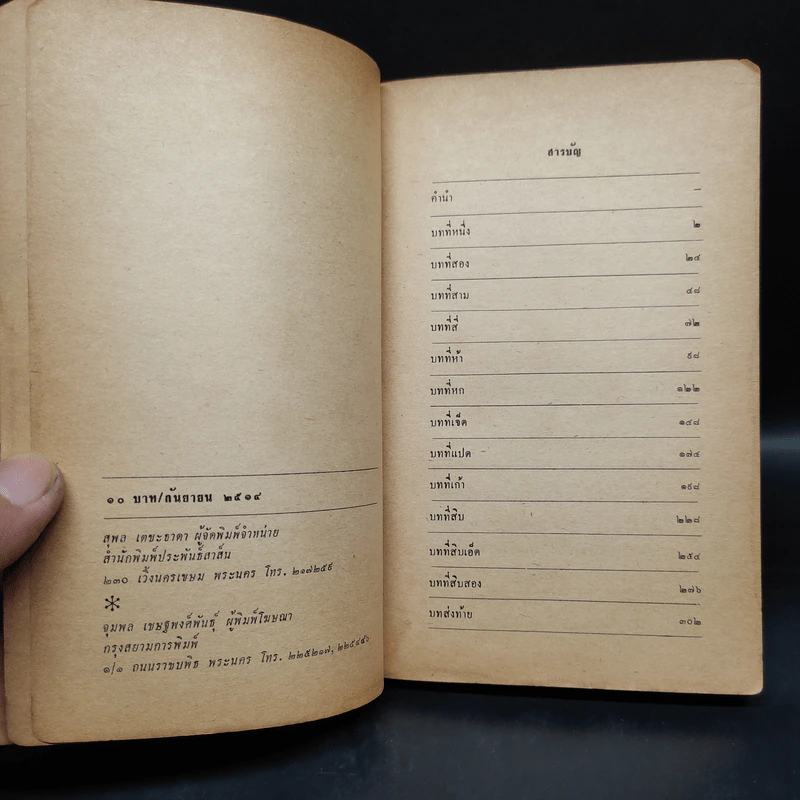 ๑๐ บาท/กันยายน ๒๕๑๔
สุพล เตชะธาดา ผู้จัดพิมพ์จำหน่าย
สำนักพิมพ์ประพันธ์สาส์น
๒๓๐ เวิ้งนครเขษม พระนคร โทร. ๒๑๗๒๕๙
จุมพล เชษฐพงศ์พันธุ์ ผู้พิมพ์โฆษณา
กรุงสยามการพิมพ์
๑/๑ ถนนราชบพิธ พระนคร โทร. ๒๒๕๒๑๗,
สารบัญ
คำนำ –
บทที่หนึ่ง ๒
บทที่สอง ๒๔
บทที่สาม ๔๘
บทที่สี่ ๗๒
บทที่ห้า ๙๘
บทที่หก ๑๒๒
บทที่เจ็ด ๑๔๘
บทที่แปด ๑๗๔
บทที่เก้า ๑๙๘
บทที่สิบ ๒๒๘
บทที่สิบเอ็ด ๒๕๔
บทที่สิบสอง ๒๗๖
บทส่งท้าย ๓๐๒